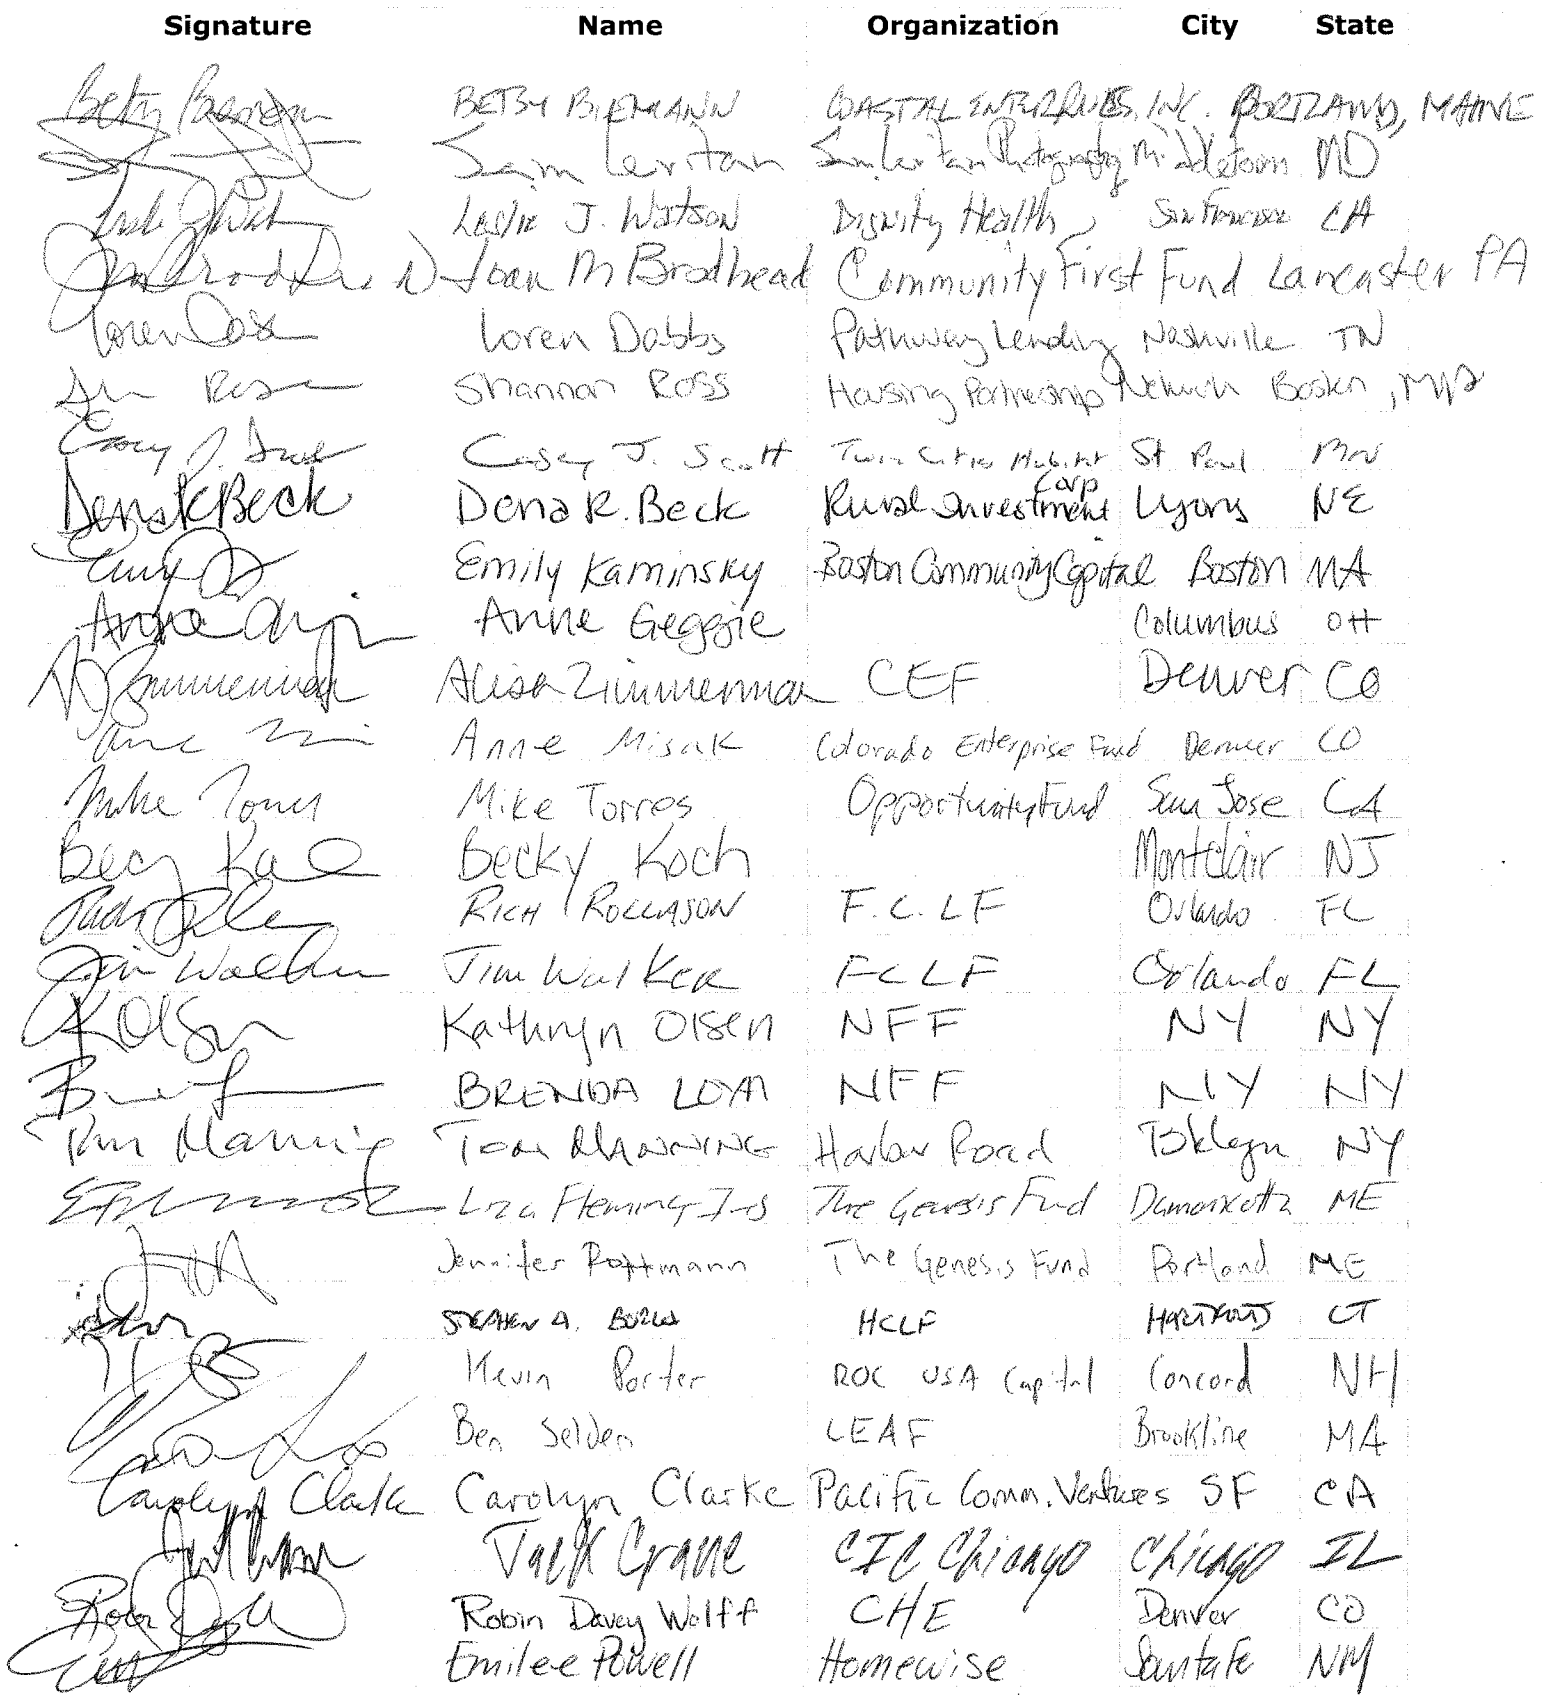 Signature Name Organization City State
Betsy Biemann BETSY BIEMANN COASTAL ENTERPRISES, INC. PORTLAND, MAINE
Sam Levitan Sam Levitan Photography Middletown MD
Leslie J. Watson Dignity Health San Francisco CA
Joan M Brodhead Community First Fund Lancaster PA
Loren Dabbs Pathway Lending Nashville TN
Shannon Ross Housing Partnership Network Boston, MA
Casey J. Scott Casey J. Scott Twin Cities Habitat St Paul MN
Dena R Beck Dena R. Beck Rural Investment Corp Lyons NE
Emily Kaminsky Boston Community Capital Boston MA
Anne Geggie Columbus OH
Zimmerman Alisa Zimmerman CEF Denver CO
Anne Misak Colorado Enterprise Fund Denver CO
Mike Torres Mike Torres Opportunity Fund San Jose CA
Becky Koch Montclair NJ
RICH ROLLASON F.C.LF Orlando FL
Jim Walker Jim Walker FCLF Orlando FL
KOlsen Kathryn Olsen NFF NY NY
BRENDA NFF NY NY
Tom Manning TOM MANNING Harbor Road Bklyn NY
Liza Fleming-Ives The Genesis Fund Damariscotta ME
Jennifer Rottmann The Genesis Fund Portland ME
STEPHEN A. HCLF HARTFORD CT
Kevin Porter ROC USA Capital Concord NH
Ben Selden LEAF Brookline MA
Carolyn Clarke Carolyn Clarke Pacific Comm. Ventures SF CA
Jack Crane CIC Chicago Chicago IL
Robin Davey Wolff CHE Denver CO
Emilee Powell Homewise Santa Fe NM